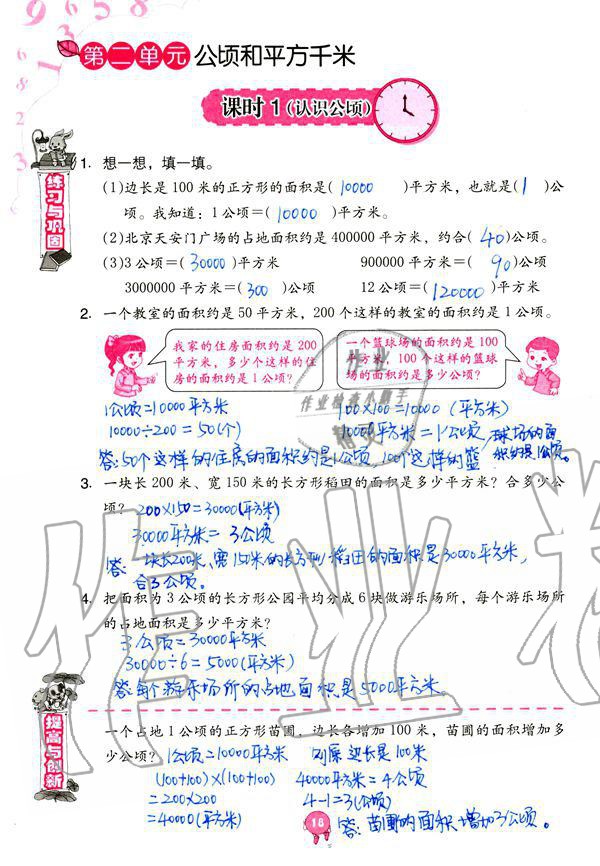 第二单元 公顷和平方千米
课时1(认识公顷)
练习与巩固
1. 想一想，填一填。
(1)边长是100米的正方形的面积是( 10000 )平方米，也就是( 1 )公
顷。我知道：1公顷=( 10000 )平方米。
(2)北京天安门广场的占地面积约是400000平方米，约合( 40 )公顷。
(3)3公顷=( 30000 )平方米 900000平方米=( 90 )公顷
3000000平方米=( 300 )公顷 12公顷=( 120000 )平方米
2. 一个教室的面积约是50平方米，200个这样的教室的面积约是1公顷。
我家的住房面积约是200
平方米，多少个这样的住
房的面积约是1公顷？
一个篮球场的面积约是100
平方米，100个这样的篮球
场的面积约是多少公顷？
1公顷=10000平方米
10000÷200=50(个)
答：50个这样的住房的面积约是1公顷，
100×100=10000(平方米)
10000平方米=1公顷
100个这样的篮球场的面
积约是1公顷。
3. 一块长200米、宽150米的长方形稻田的面积是多少平方米？合多少公
顷？ 200×150=30000(平方米)
30000平方米=3公顷
答：一块长200米、宽150米的长方形稻田的面积是30000平方米，
合3公顷。
4. 把面积为3公顷的长方形公园平均分成6块做游乐场所，每个游乐场所
的占地面积是多少平方米？
3公顷=30000平方米
30000÷6=5000(平方米)
答：每个游乐场所的占地面积是5000平方米。
提高与创新
一个占地1公顷的正方形苗圃，边长各增加100米，苗圃的面积增加多
少公顷？ 1公顷=10000平方米 则原边长是100米
(100+100)×(100+100) 40000平方米=4公顷
=200×200 4-1=3(公顷)
=40000(平方米) 答：苗圃的面积增加3公顷。
18
作业
作业检查小助手